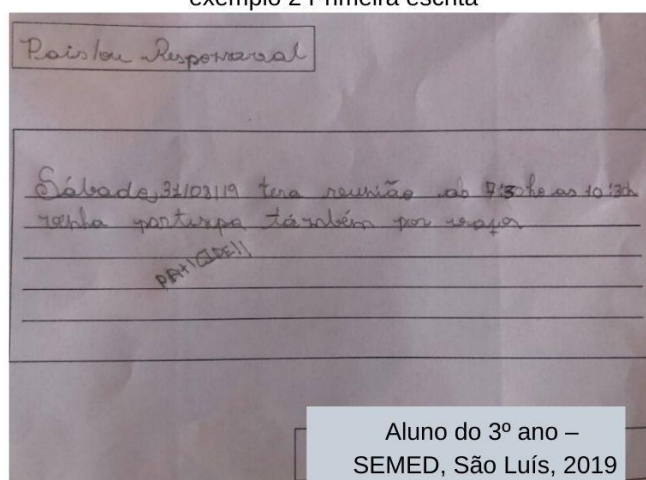 exemplo 2 Primeira escrita
Pais/ou Responsaval
Sábado, 31/08/19 tera reunião as 7:30h e as 10:30h
venha partisipa também por
PARTICIPE!!
Aluno do 3º ano –
SEMED, São Luís, 2019